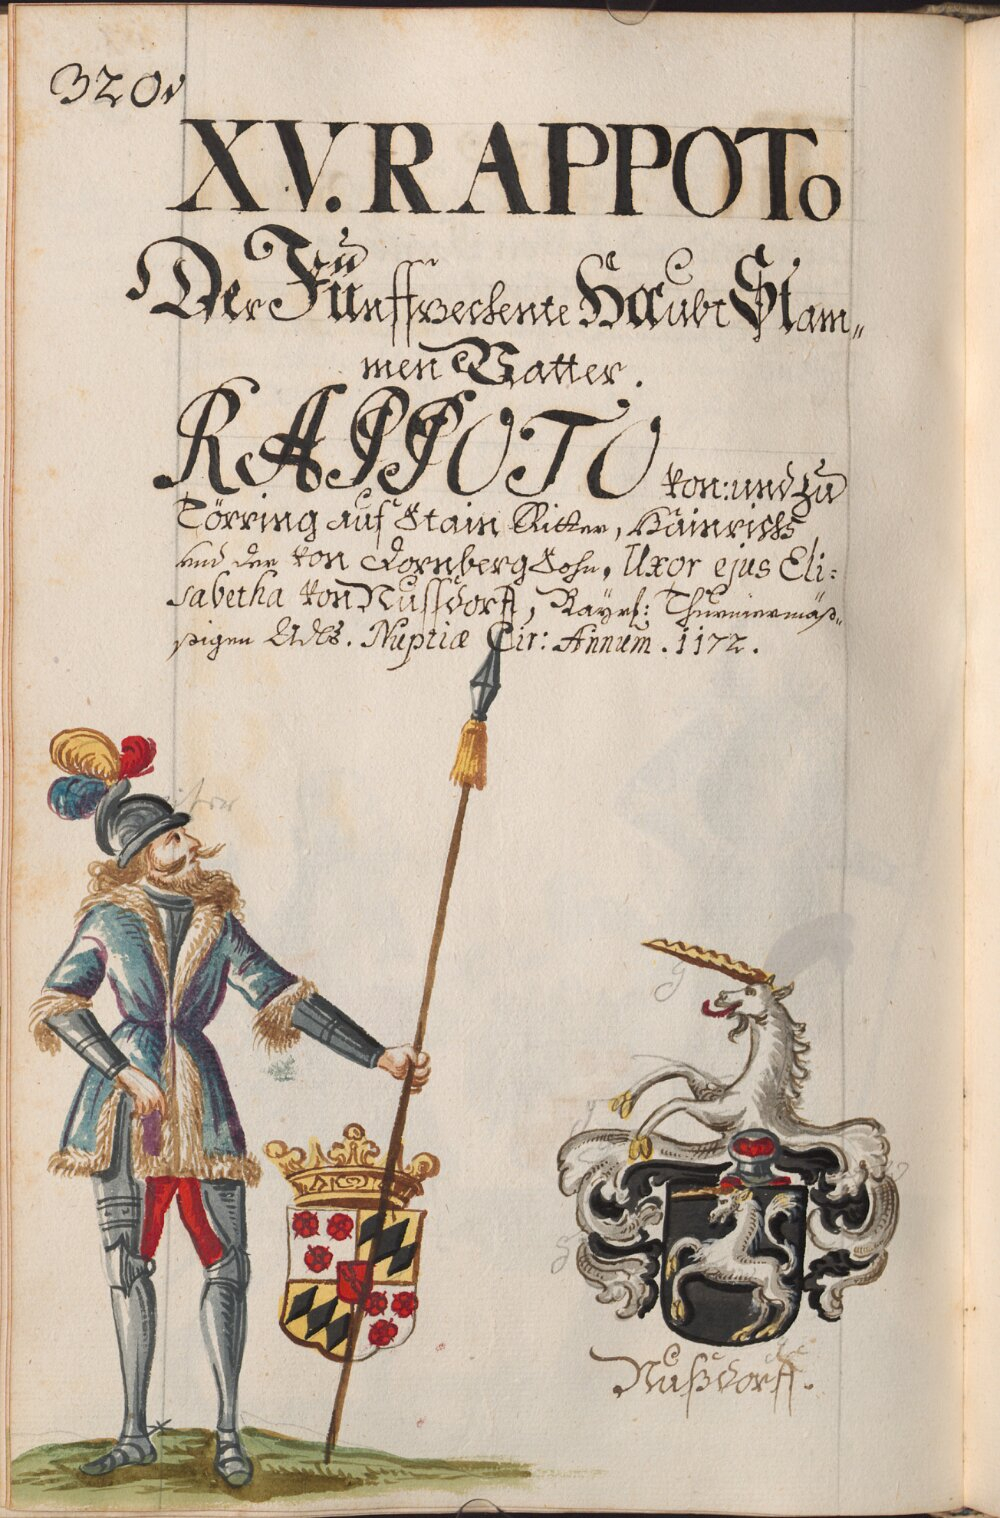 320v
XV. RAPPOTo
Der Fünffzechente Haubt Stam„
men Vatter.
RAPPOTO von: und zu
Törring auf Stain Ritter, Hainrichs
und der von Dornberg Sohn, Uxor ejus Eli:
sabetha von Nussdorff, Bayrl: Thurniermäs„
sigen Adls. Nuptiæ Cir: Annum . 1172 .
Nußdorff.